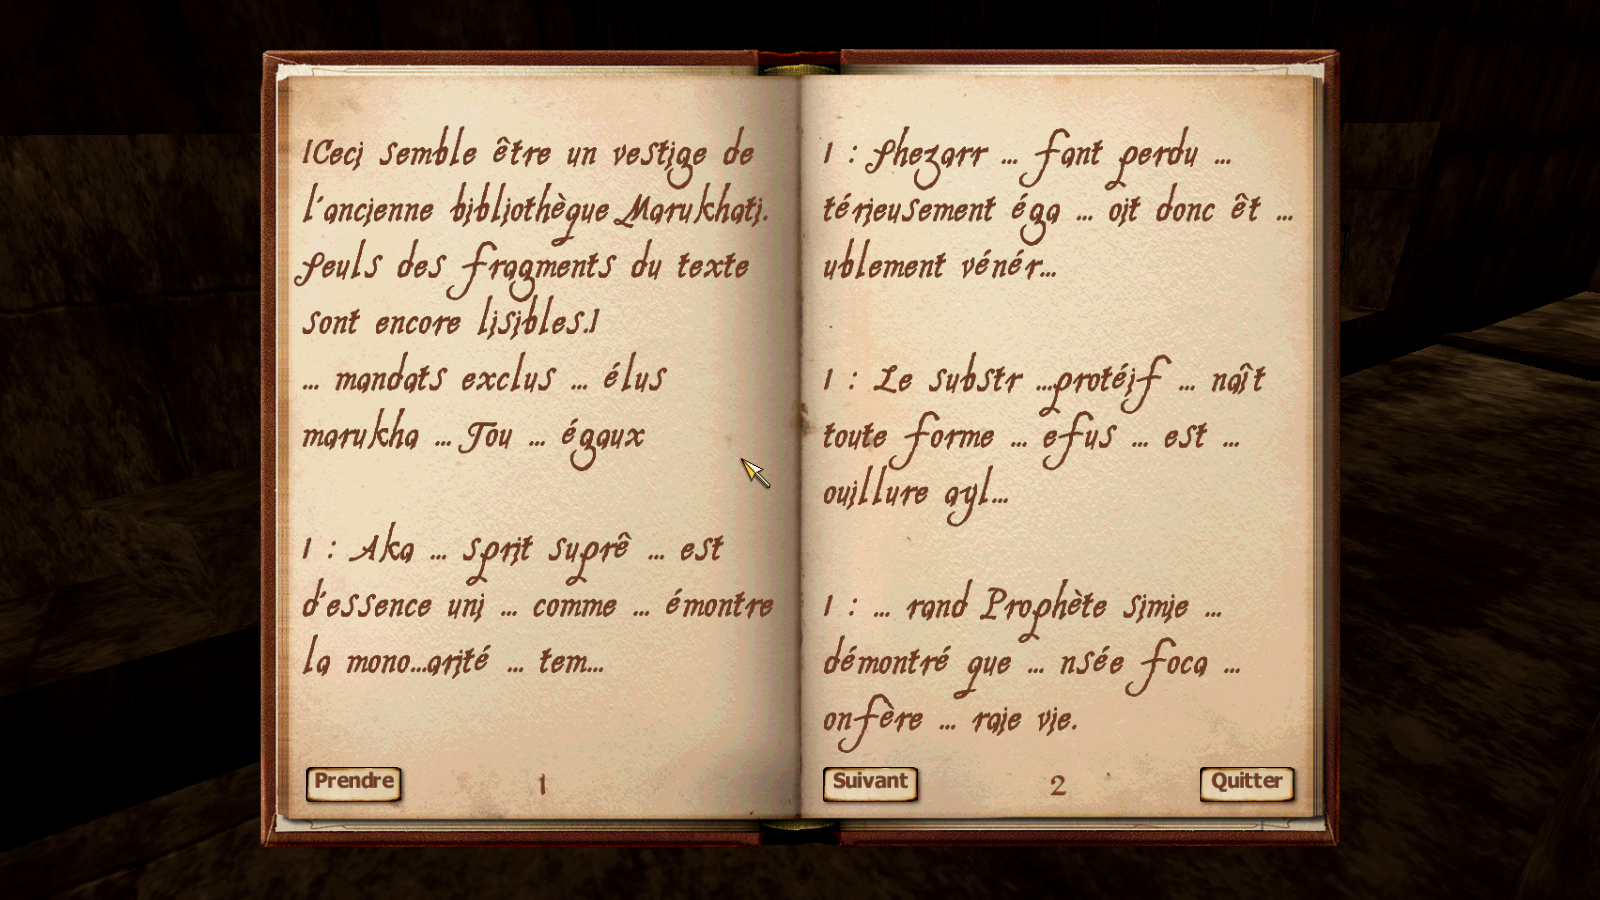 [Ceci semble être un vestige de
l'ancienne bibliothèque Marukhati.
Seuls des fragments du texte
sont encore lisibles.]
... mandats exclus ... élus
marukha ... Tou ... égaux
1 : Aka ... sprit suprê ... est
d'essence uni ... comme ... émontre
la mono...arité ... tem...
Prendre
1
1 : Shezarr ... fant perdu ...
térieusement éga ... oit donc êt ...
ublement vénér...
1 : Le substr ...protéif ... naît
toute forme ... efus ... est ...
ouillure ayl...
1 : ... rand Prophète simie ...
démontré que ... nsée foca ...
onfère ... raie vie.
Suivant
2
Quitter